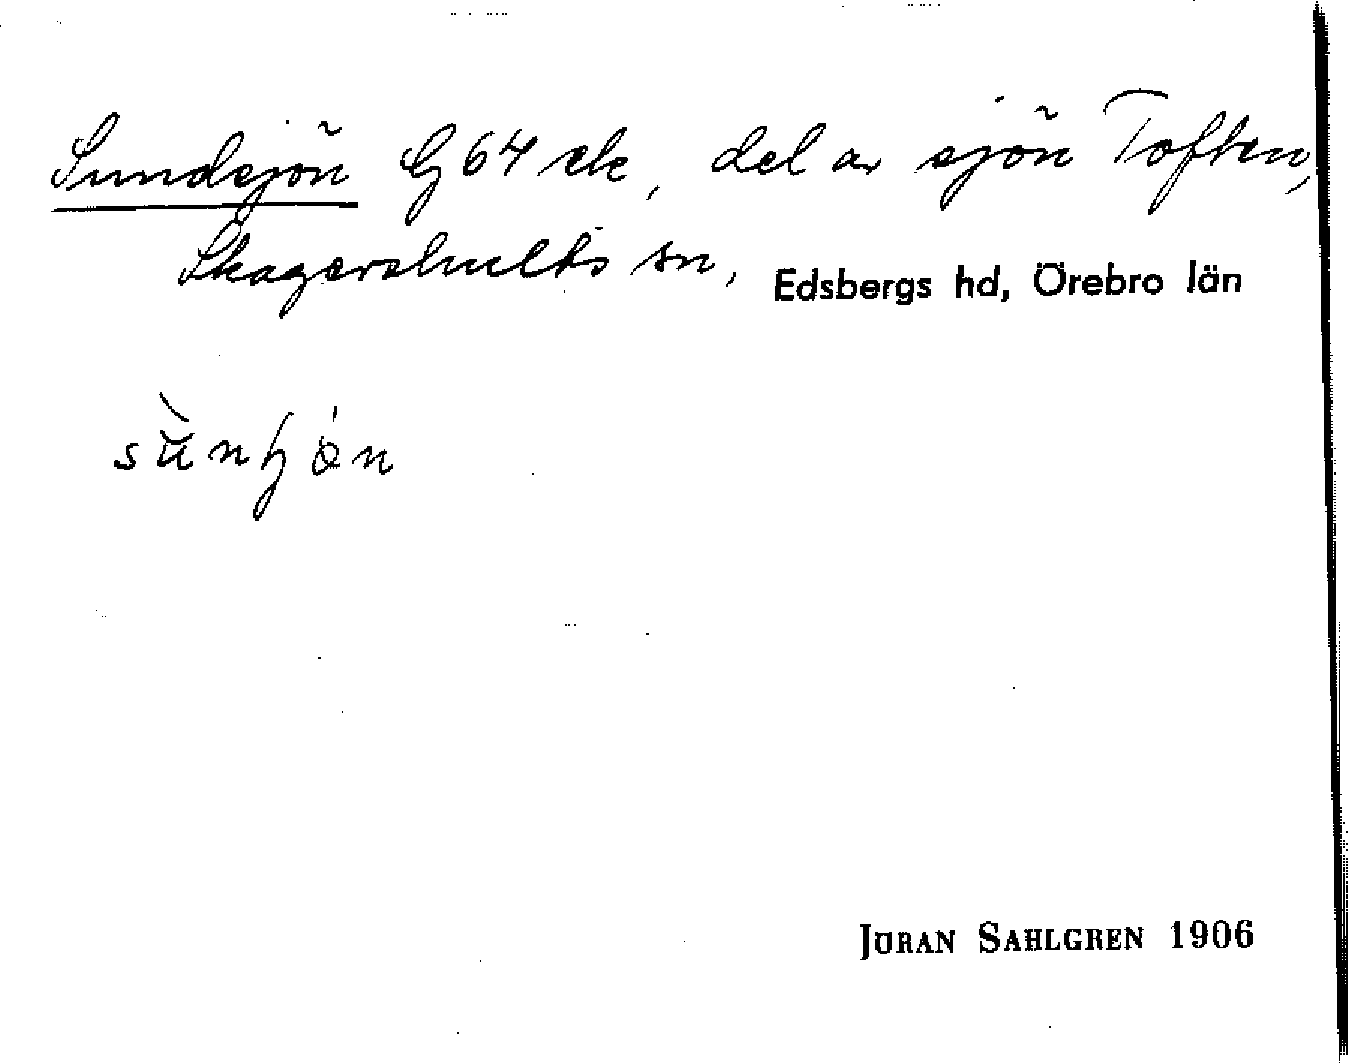 Sundsjön G 64 ek, del av sjön Toften,
Skagershults sn, Edsbergs hd, Örebro län
JÖRAN SAHLGREN 1906